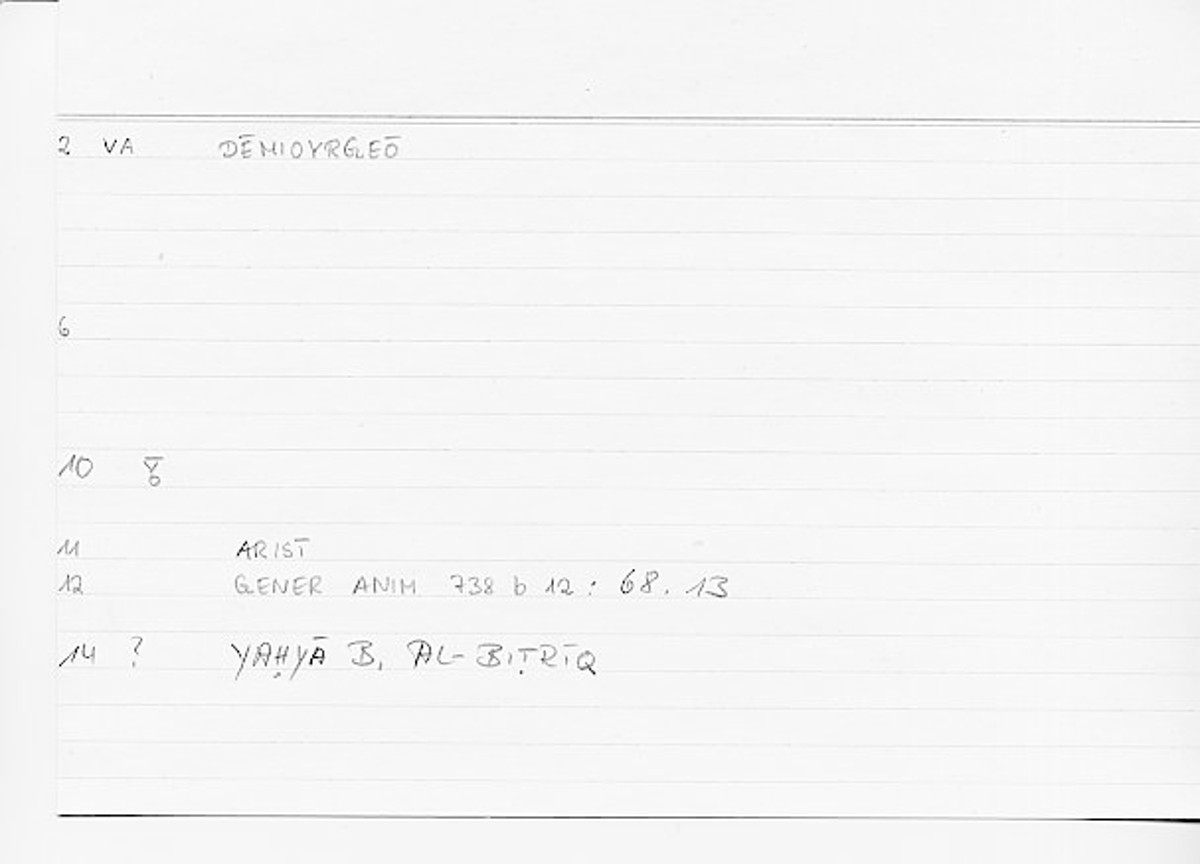 2 VA DĒMIOYRGEŌ
6
10
11 ARIST
12 GENER ANIM 738 b 12 : 68. 13
14 ? YAḤYĀ B. AL-BIṬRĪQ